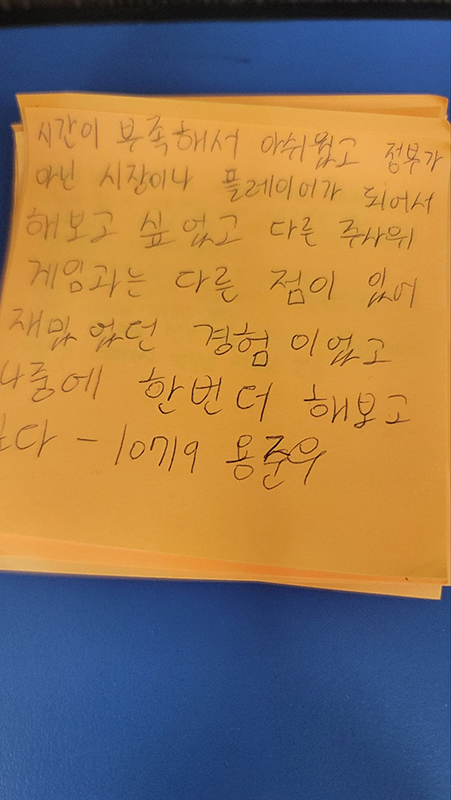 시간이 부족해서 아쉬웠고 정부가
아닌 시장이나 플레이어가 되어서
해보고 싶었고 다른 주사위
게임과는 다른 점이 있어
재밌었던 경험이었고
나중에 한번 더 해보고
싶다 - 10719 용준우